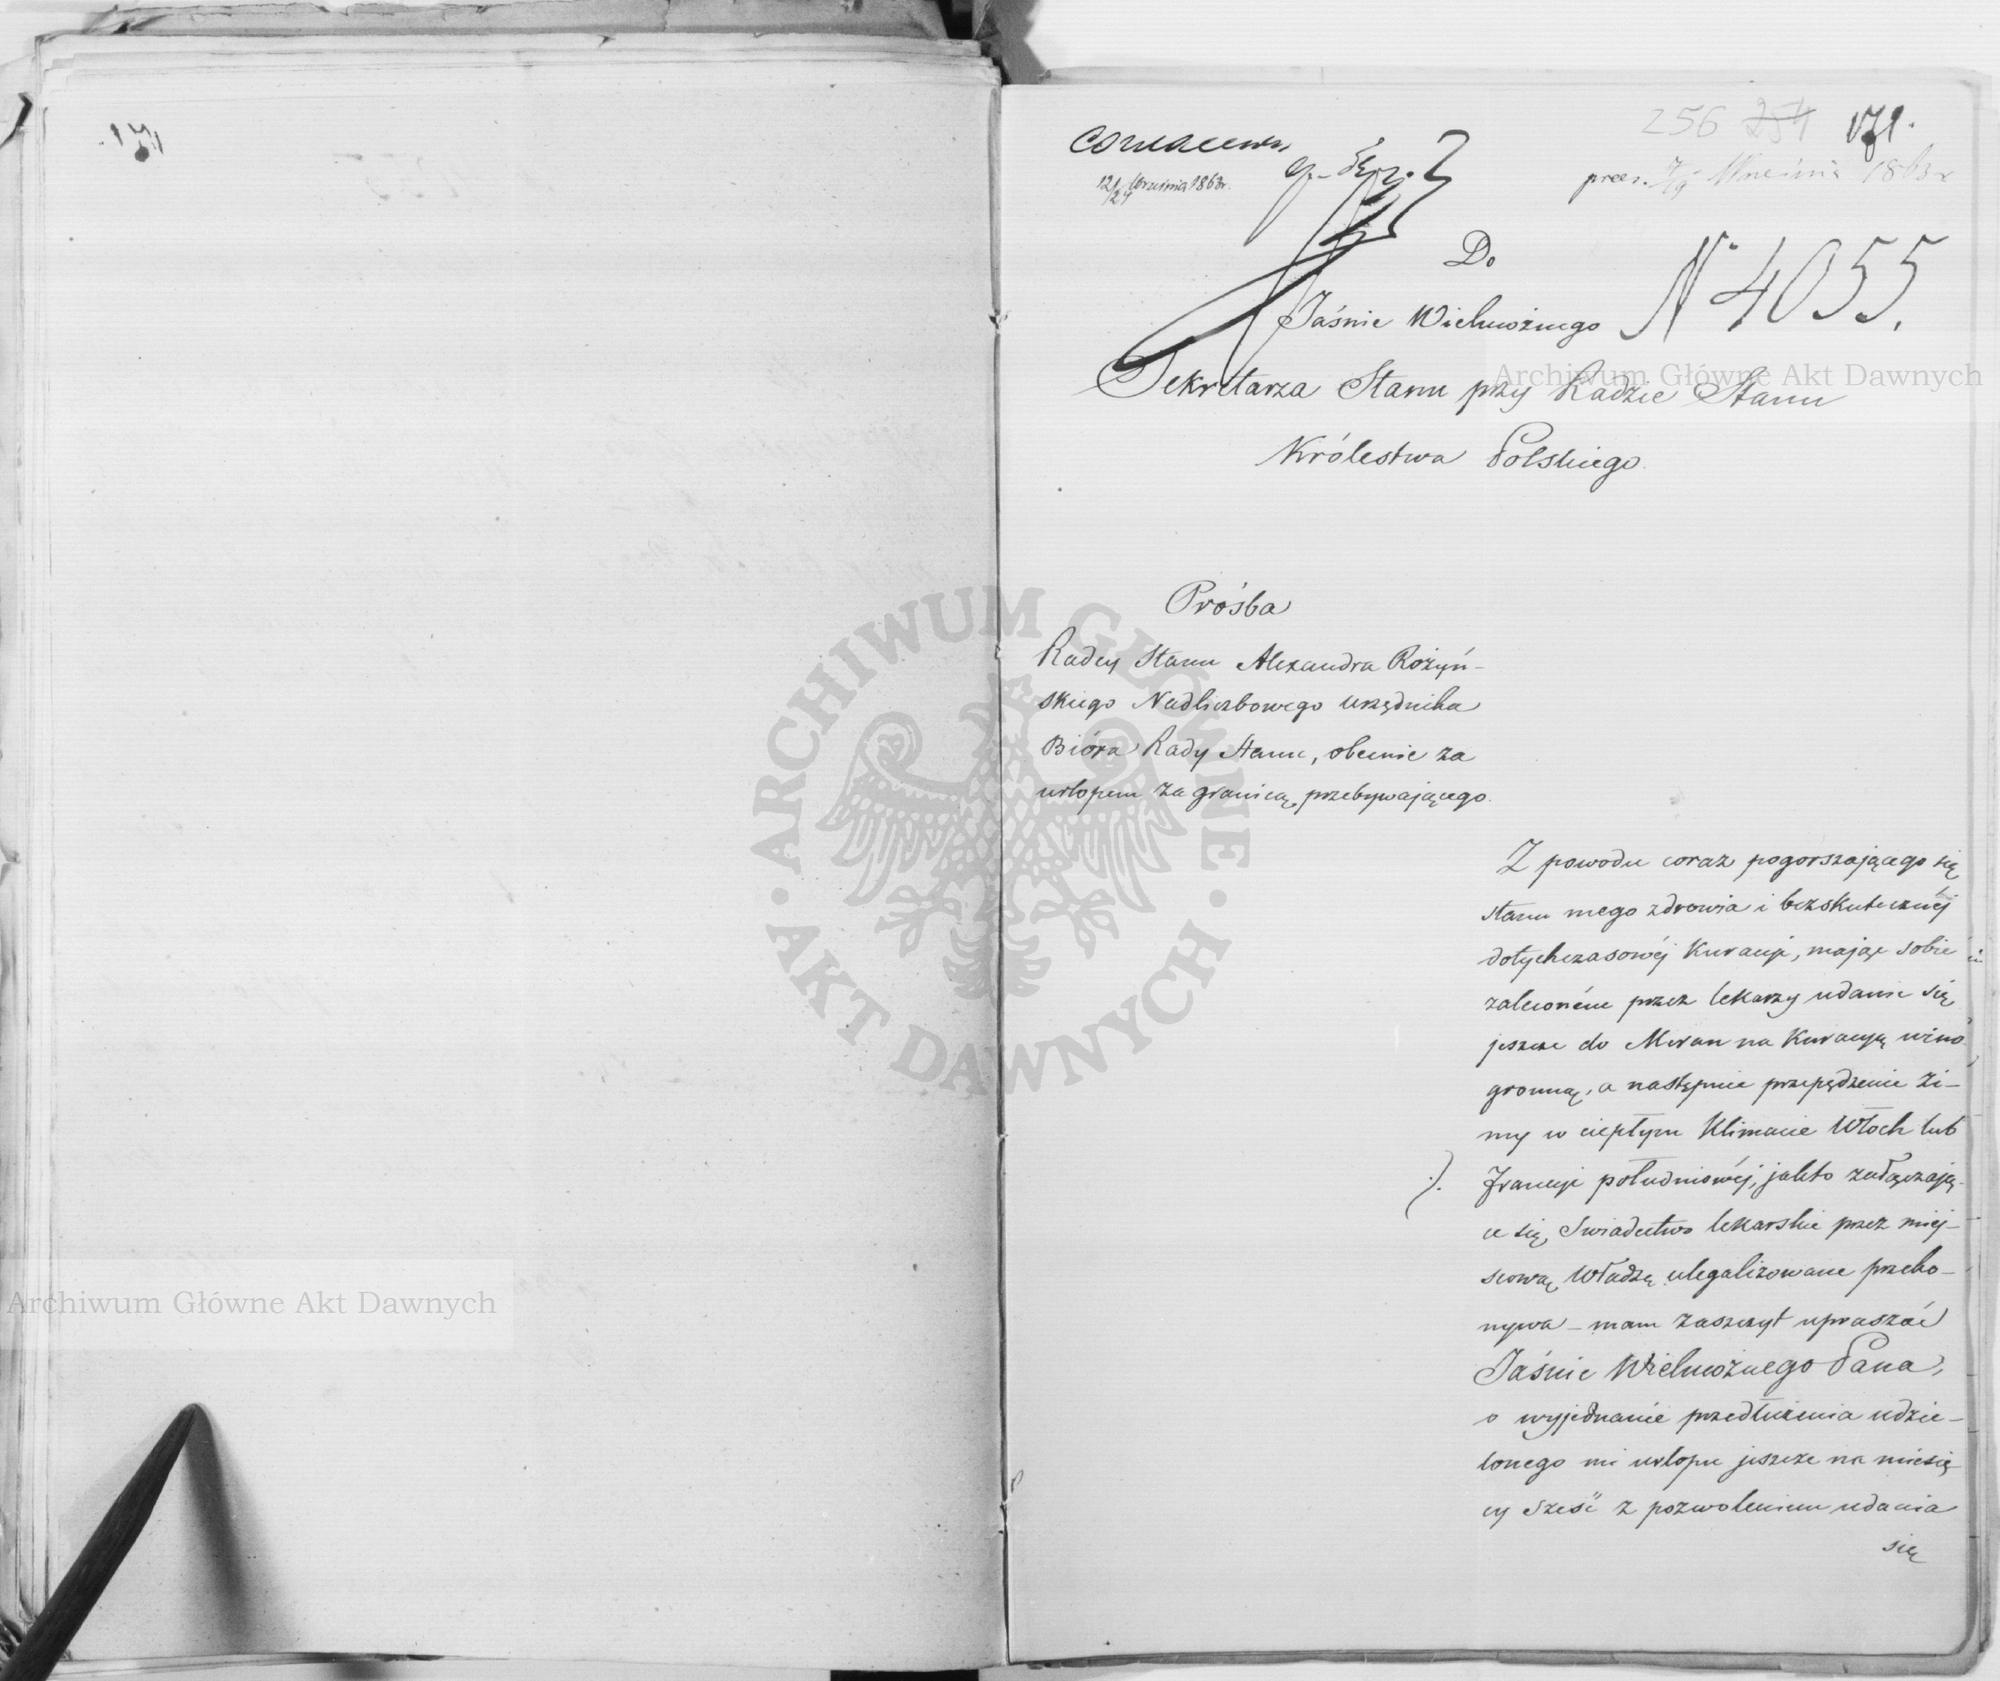 171.
256 254 171.
12/24 Września 1863r.
prez. 7/19 Września 1863 r
Do
N 4055.
Jaśnie Wielmożnego
Sekretarza Stanu przy Radzie Stanu
Królestwa Polskiego.
Prośba
Radcy Stanu Alexandra Rożyń-
skiego Nadliczbowego urzędnika
Bióra Rady Stanu, obecnie za
urlopem za granicą przebywającego.
Z powodu coraz pogorszającego się
stanu mego zdrowia i bezskutecznéj
dotychczasowéj Kuracyi, mając sobie
zaleconém przez lekarzy udanie się
jeszcze do Meran na Kuracyą wino-
gronną, a następnie przepędzenie zi-
my w ciepłym Klimacie Włoch lub
Francyi południowéj, jakto załączają-
ce się Swiadectwo lekarskie przez miej-
scową Władzę ulegalizowane przeko-
nywa – mam zaszczyt upraszać
Jaśnie Wielmożnego Pana,
o wyjednanie przedłużenia udzie-
lonego mi urlopu jeszcze na miesię
cy sześć z pozwoleniem udania
się
Archiwum Główne Akt Dawnych
Archiwum Główne Akt Dawnych
ARCHIWUM GŁÓWNE AKT DAWNYCH